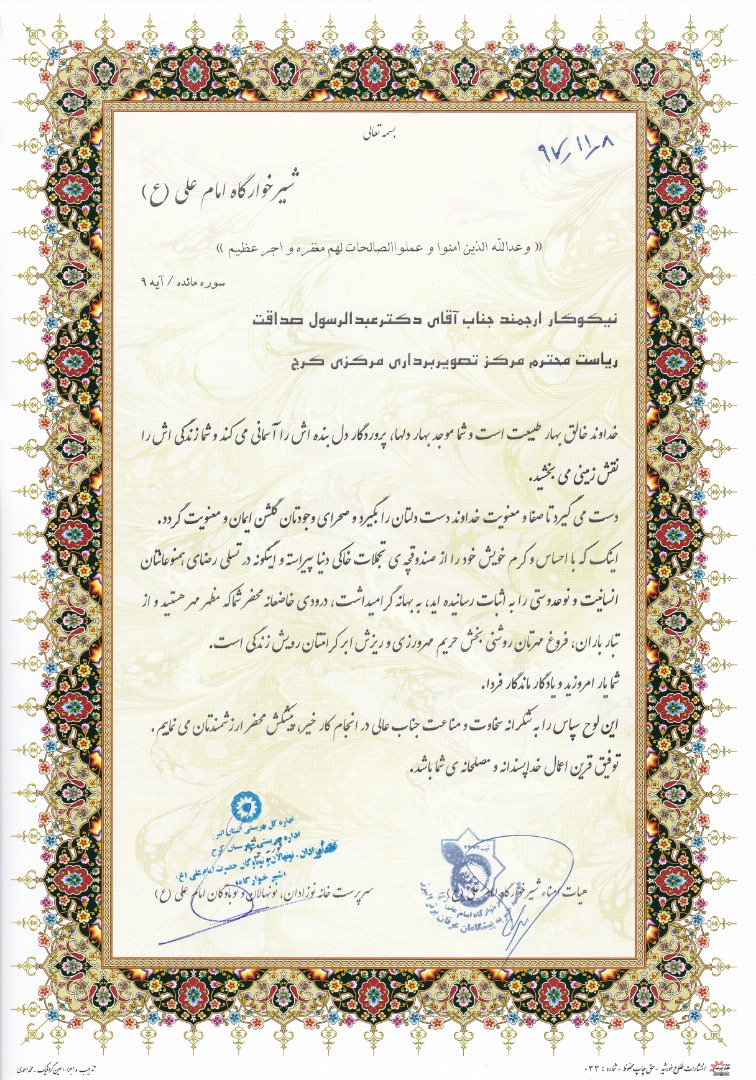 بسمه تعالی
۹۷٫۱۱٫۸
شیرخوارگاه امام علی (ع)
« وعدالله الذین امنوا و عملواالصالحات لهم مغفره و اجر عظیم »
سوره مائده / آیه ۹
نیکوکار ارجمند جناب آقای دکترعبدالرسول صداقت
ریاست محترم مرکز تصویربرداری مرکزی کرج
خداوند خالق بهار طبیعت است و شما موجد بهار دلها، پروردگار دل بنده اش را آسمانی می کند و شما زندگی اش را
نقش زمینی می بخشید.
دست می گیرد تا صفا و معنویت خداوند دست دلتان را بگیرد و صحرای وجودتان گلشن ایمان و معنویت گردد.
اینک که با احساس و کرم خویش خود را از صندوقچه ی تجملات خاکی دنیا پیراسته و اینگونه در تسلی رضای همنوعانتان
انسانیت و نوعدوستی را به اثبات رسانیده اید، به بهانه گرامیداشت، درودی خاضعانه محضر شما که مظهر مهر هستید و از
تبار باران، فروغ مهرتان روشنی بخش حریم مهرورزی و ریزش ابر کرامتتان رویش زندگی است.
شما یار امروزید و یادگار ماندگار فردا.
این لوح سپاس را به شکرانه سخاوت و مناعت جناب عالی در انجام کار خیر، پیشکش محضر ارزشمندتان می نماییم.
توفیق قرین اعمال خداپسندانه و مصلحانه ی شما باشد.
اداره کل بهزیستی استان البرز
اداره بهزیستی شهرستان کرج
نوزادان، نونهالان و نوباوگان حضرت امام علی (ع)
(شیر خوارگاه)
هیات امناء شیرخوارگاه امام علی (ع)
سرپرست خانه نوزادان، نونهالان و نوباوگان امام علی (ع)
انتشارات طلوع خورشید - حق چاپ محفوظ - شماره : ۰۳۳